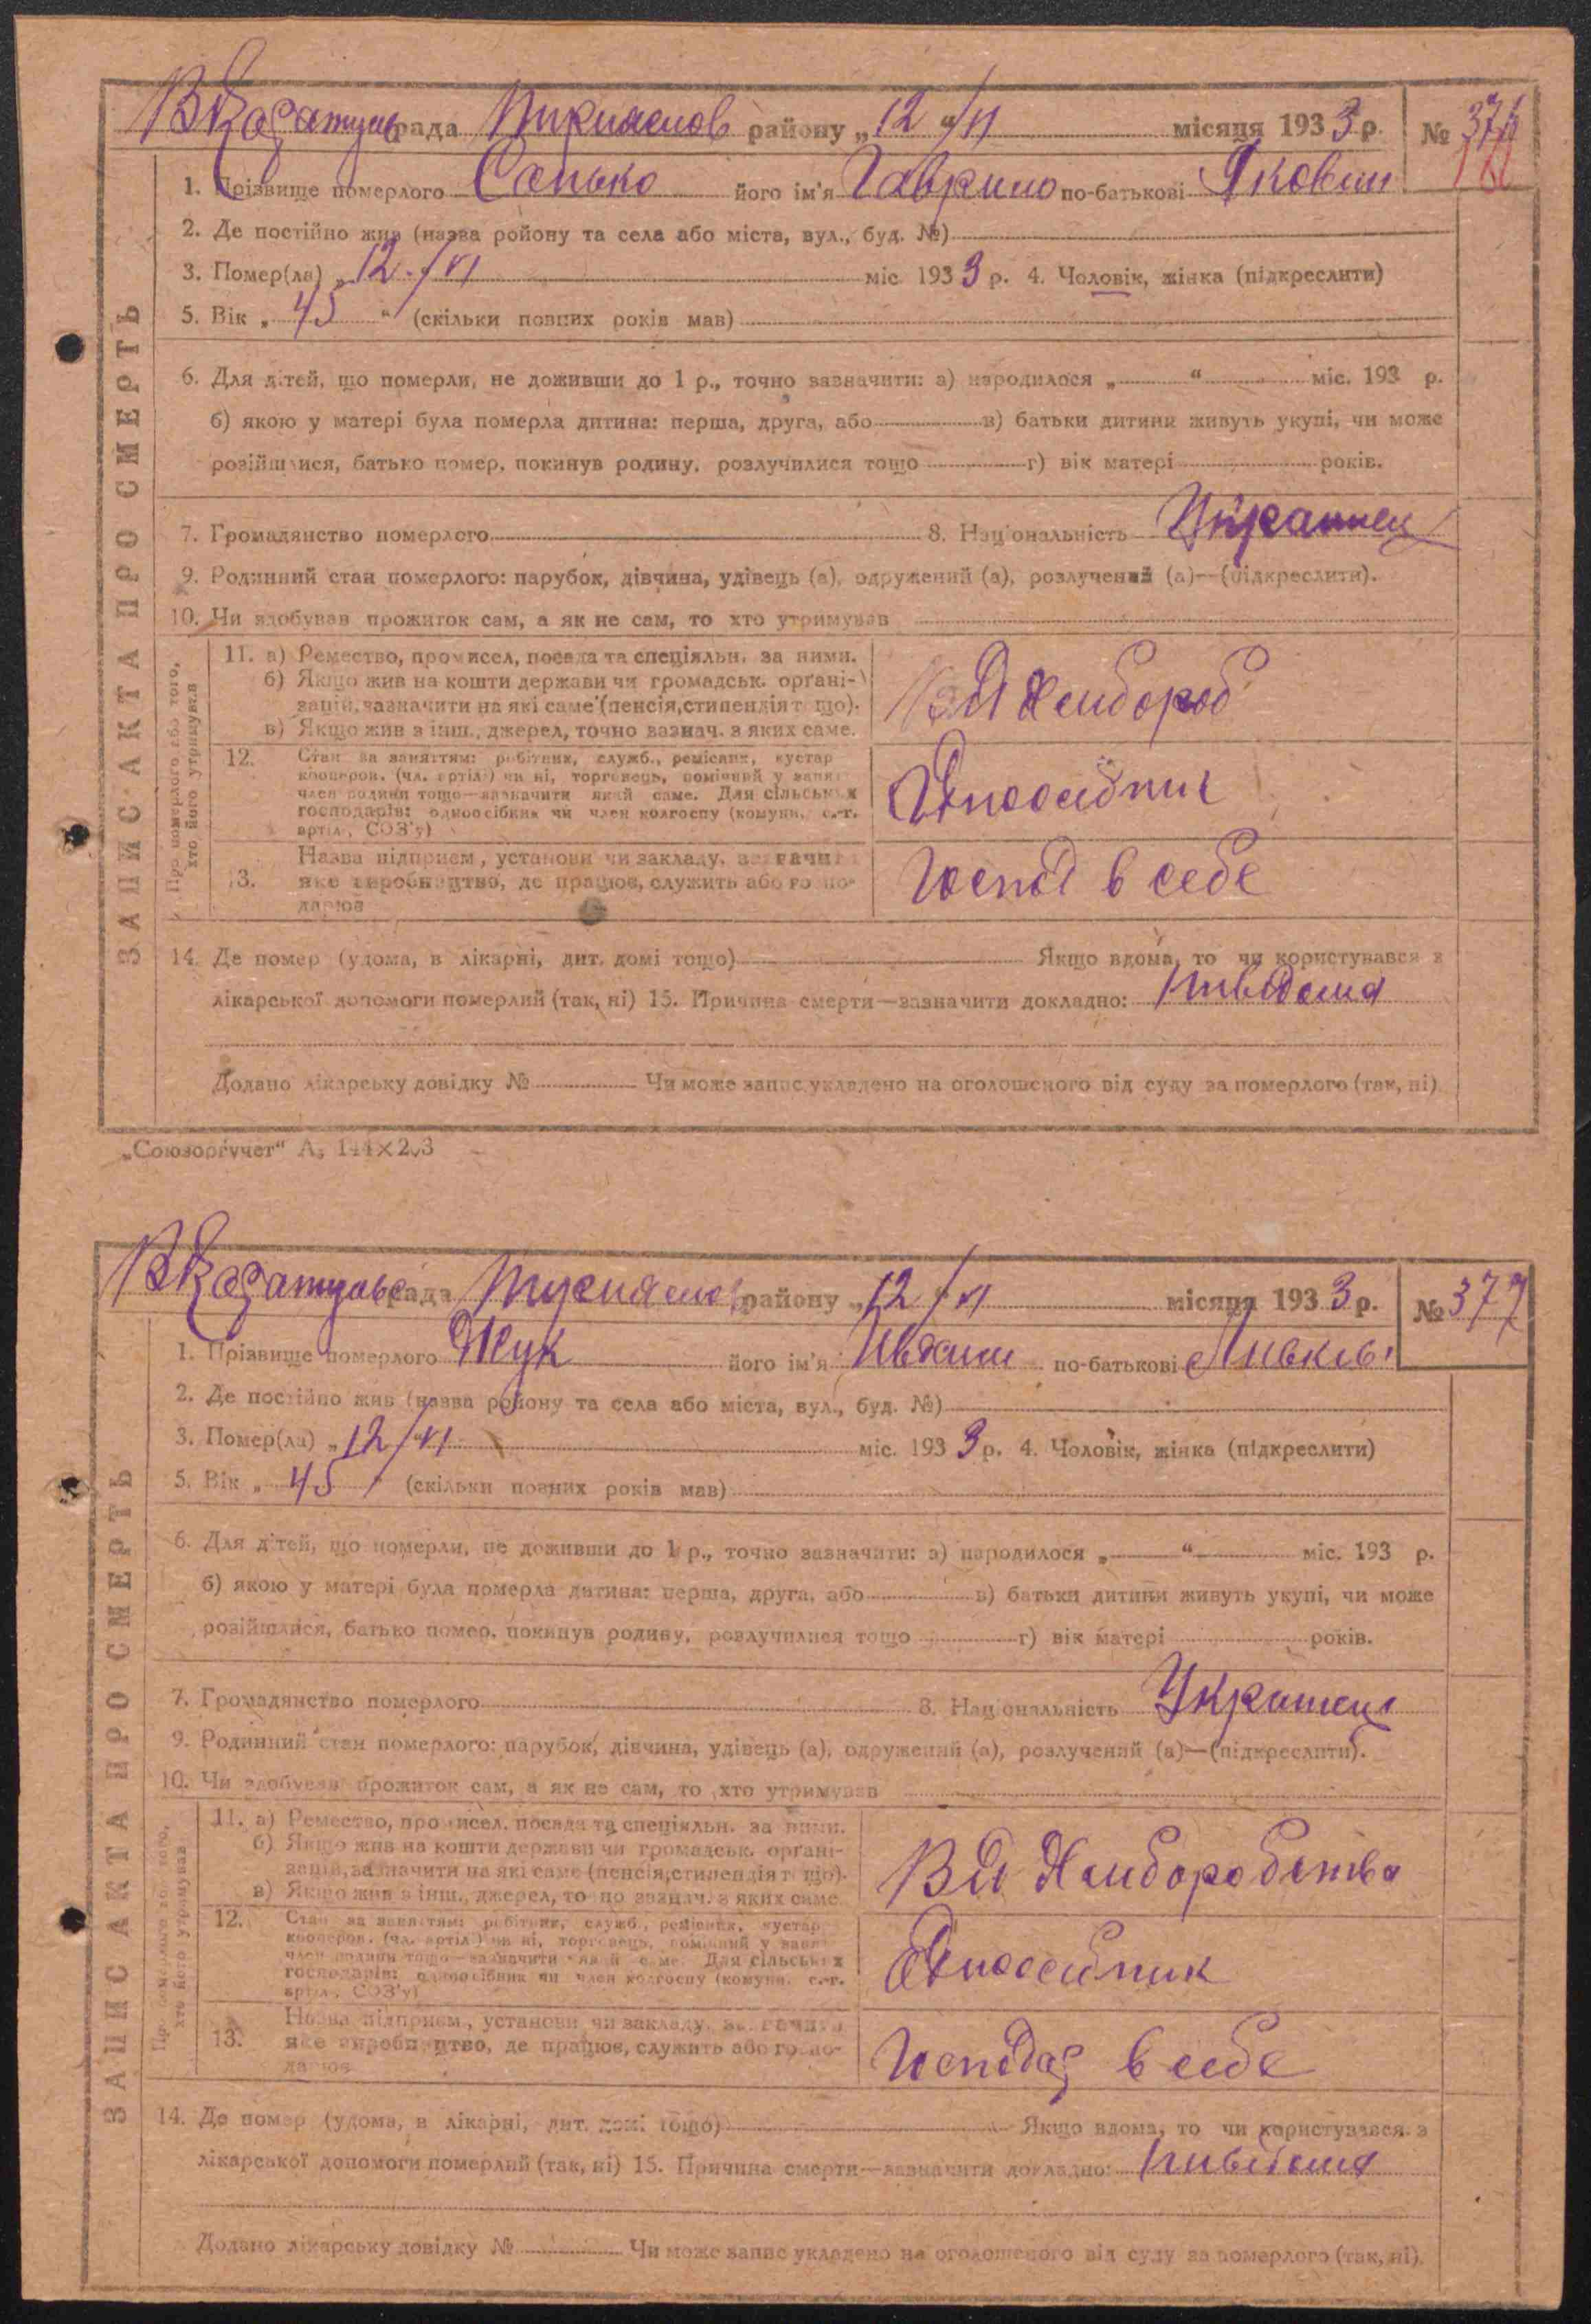 рада району „12"/VI місяця 1933 р. № 376
1. Прізвище померлого Санько його ім'я Гаврило по-батькові Яковин
2. Де постійно жив (назва ройону та села або міста, вул., буд. №)
3. Помер(ла) „12"/VI міс 1933 р. 4. Чоловік, жінка (підкреслити)
5. Вік „45" (скільки повних років мав)
6. Для дітей, що померли, не доживши до 1 р., точно зазначити: а) народилося „ " міс. 193 р.
б) якою у матері була померла дитина: перша, друга, або в) батьки дитини живуть укупі, чи може
розійшлися, батько помер, покинув родину, розлучилися тощо г) вік матері років.
7. Громадянство померлого 8. Національність Українец
9. Родинний стан померлого: парубок, дівчина, удівець (а), одружений (а), розлучений (а)—(підкреслити).
10. Чи здобував прожиток сам, а як не сам, то хто утримував
ЗАПИС АКТА ПРО СМЕРТЬ
Про померлого або того,
хто його утримував
11. а) Ремество, промисел, посада та спеціяльн. за ними.
б) Якщо жив на кошти держави чи громадськ. орґані-
зацій, зазначити на які саме (пенсія, стипендія тощо).
в) Якщо жив з інш., джерел, точно зазнач. з яких саме.
Від Хлібороб
12. Стан за заняттям: робітник, служб., ремісник, кустар
кооперов. (чл. артілі) чи ні, торговець, помічний у занят.
член родини тощо—зазначити який саме. Для сільських
господарів: одноосібник чи член колгоспу (комуни, с.-г.
артіл., СОЗ'у)
Одноосібник
13. Назва підприєм., установи чи закладу, зазначити
яке виробництво, де працює, служить або госпо-
дарює
Господ в себе
14. Де помер (удома, в лікарні, дит. домі тощо) Якщо вдома, то чи користувався з
лікарської допомоги померлий (так, ні) 15. Причина смерти—зазначити докладно: Нивідома
Додано лікарську довідку № Чи може запис укладено на оголошеного від суду за померлого (так, ні)
„Союзоргучет" А₅ 144×203
рада району „12"/VI місяця 1933 р. № 377
1. Прізвище померлого Жук його ім'я по-батькові
2. Де постійно жив (назва ройону та села або міста, вул., буд. №)
3. Помер(ла) „12"/VI міс. 1933 р. 4. Чоловік, жінка (підкреслити)
5. Вік „45" (скільки повних років мав)
6. Для дітей, що померли, не доживши до 1 р., точно зазначити: а) народилося „ " міс. 193 р.
б) якою у матері була померла дитина: перша, друга, або в) батьки дитини живуть укупі, чи може
розійшлися, батько помер, покинув родину, розлучилися тощо г) вік матері років.
7. Громадянство померлого 8. Національність Українец
9. Родинний стан померлого: парубок, дівчина, удівець (а), одружений (а), розлучений (а)—(підкреслити).
10. Чи здобував прожиток сам, а як не сам, то хто утримував
ЗАПИС АКТА ПРО СМЕРТЬ
Про померлого або того,
хто його утримував
11. а) Ремество, промисел, посада та спеціяльн. за ними.
б) Якщо жив на кошти держави чи громадськ. орґані-
зацій, зазначити на які саме (пенсія, стипендія тощо).
в) Якщо жив з інш., джерел, точно зазнач. з яких саме
Від Хлиборобства
12. Стан за заняттям: робітник, служб., ремісник, кустар
кооперов. (чл. артілі) чи ні, торговець, помічний у занят.
член родини тощо—зазначити який саме. Для сільських
господарів: одноосібник чи член колгоспу (комуни, с.-г.
артіл., СОЗ'у)
Одноосібник
13. Назва підприєм., установи чи закладу, зазначити
яке виробництво, де працює, служить або госпо-
дарює
Господар в себе
14. Де помер (удома, в лікарні, дит. домі тощо) Якщо вдома, то чи користувався з
лікарської допомоги померлий (так, ні) 15. Причина смерти—зазначити докладно: Нивідома
Додано лікарську довідку № Чи може запис укладено на оголошеного від суду за померлого (так, ні).